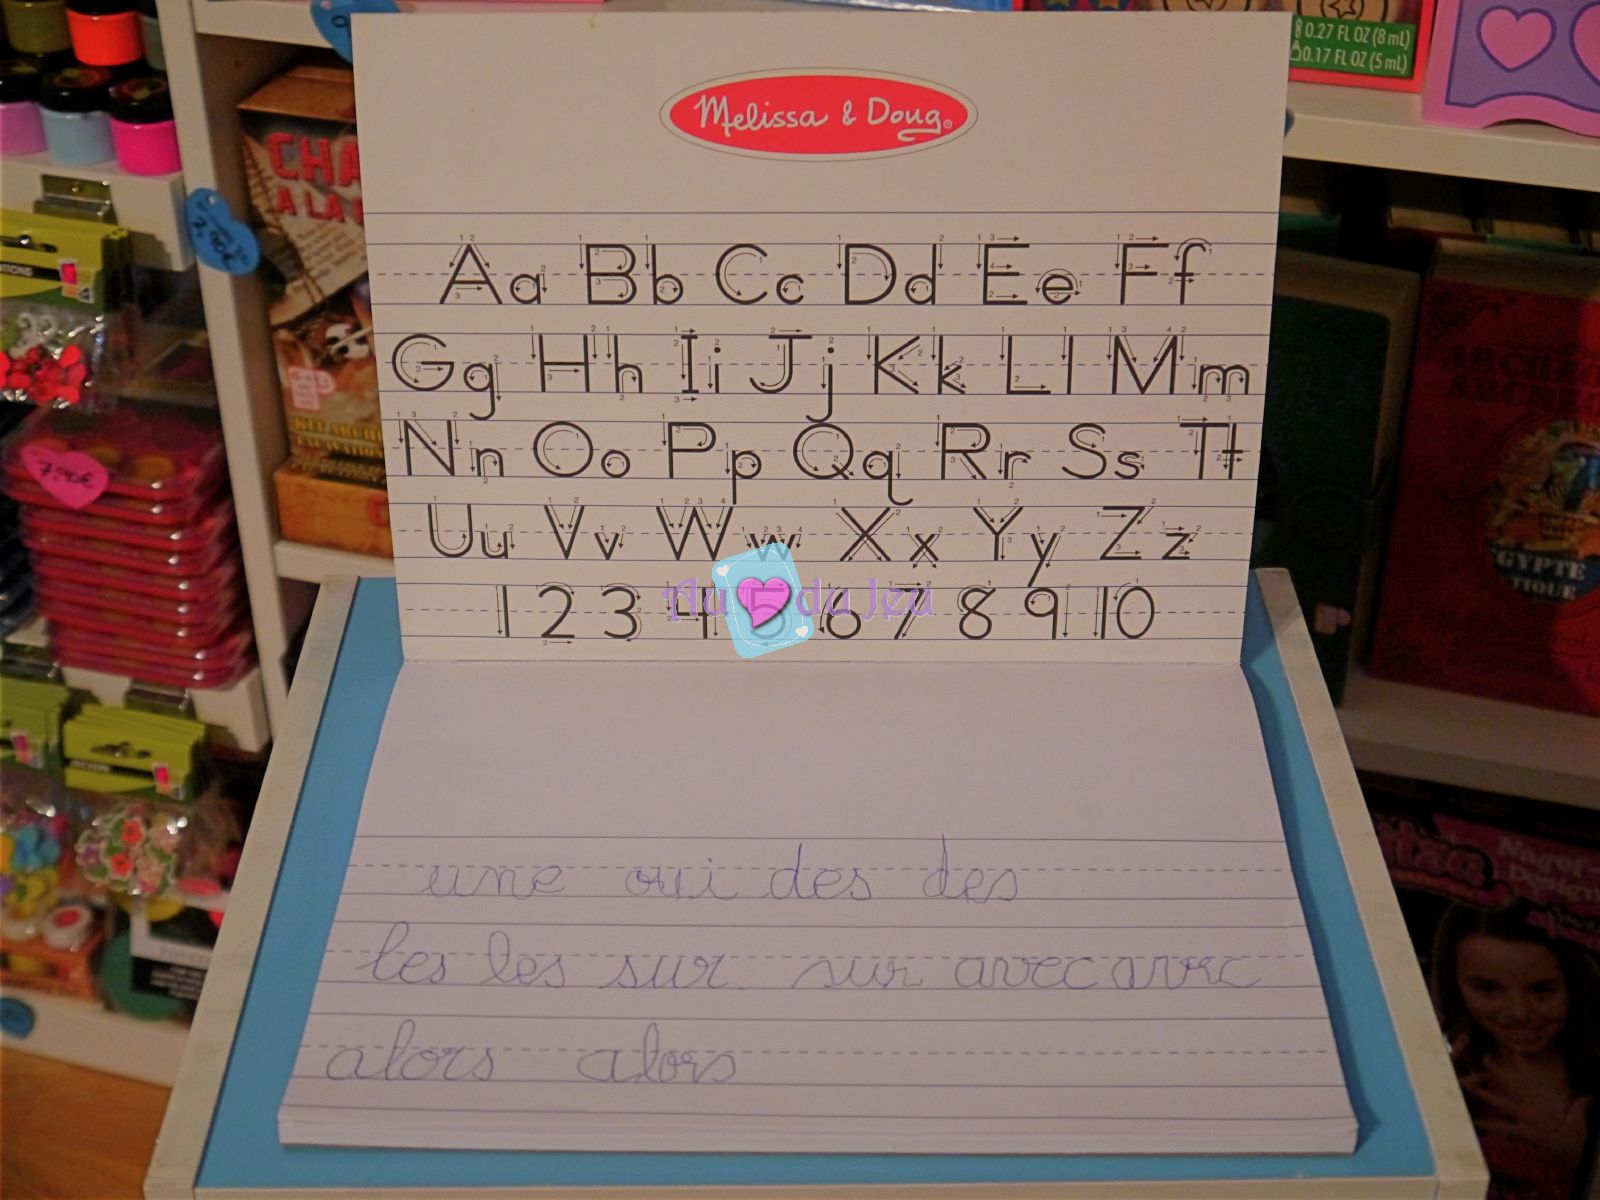 0.27 FL OZ (8 mL)
0.17 FL OZ (5 mL)
Melissa & Doug®
CHA
A LA
2,90€
Aa Bb Cc Dd Ee Ff
Gg Hh Ii Jj Kk Ll Mm
7,90€
Nn Oo Pp Qq Rr Ss Tt
Uu Vv Ww Xx Yy Zz
ÉGYPTE
1 2 3 4 5 6 7 8 9 10
Au du Jeu
une oui des des
les les sur sur avec avec
alors alors